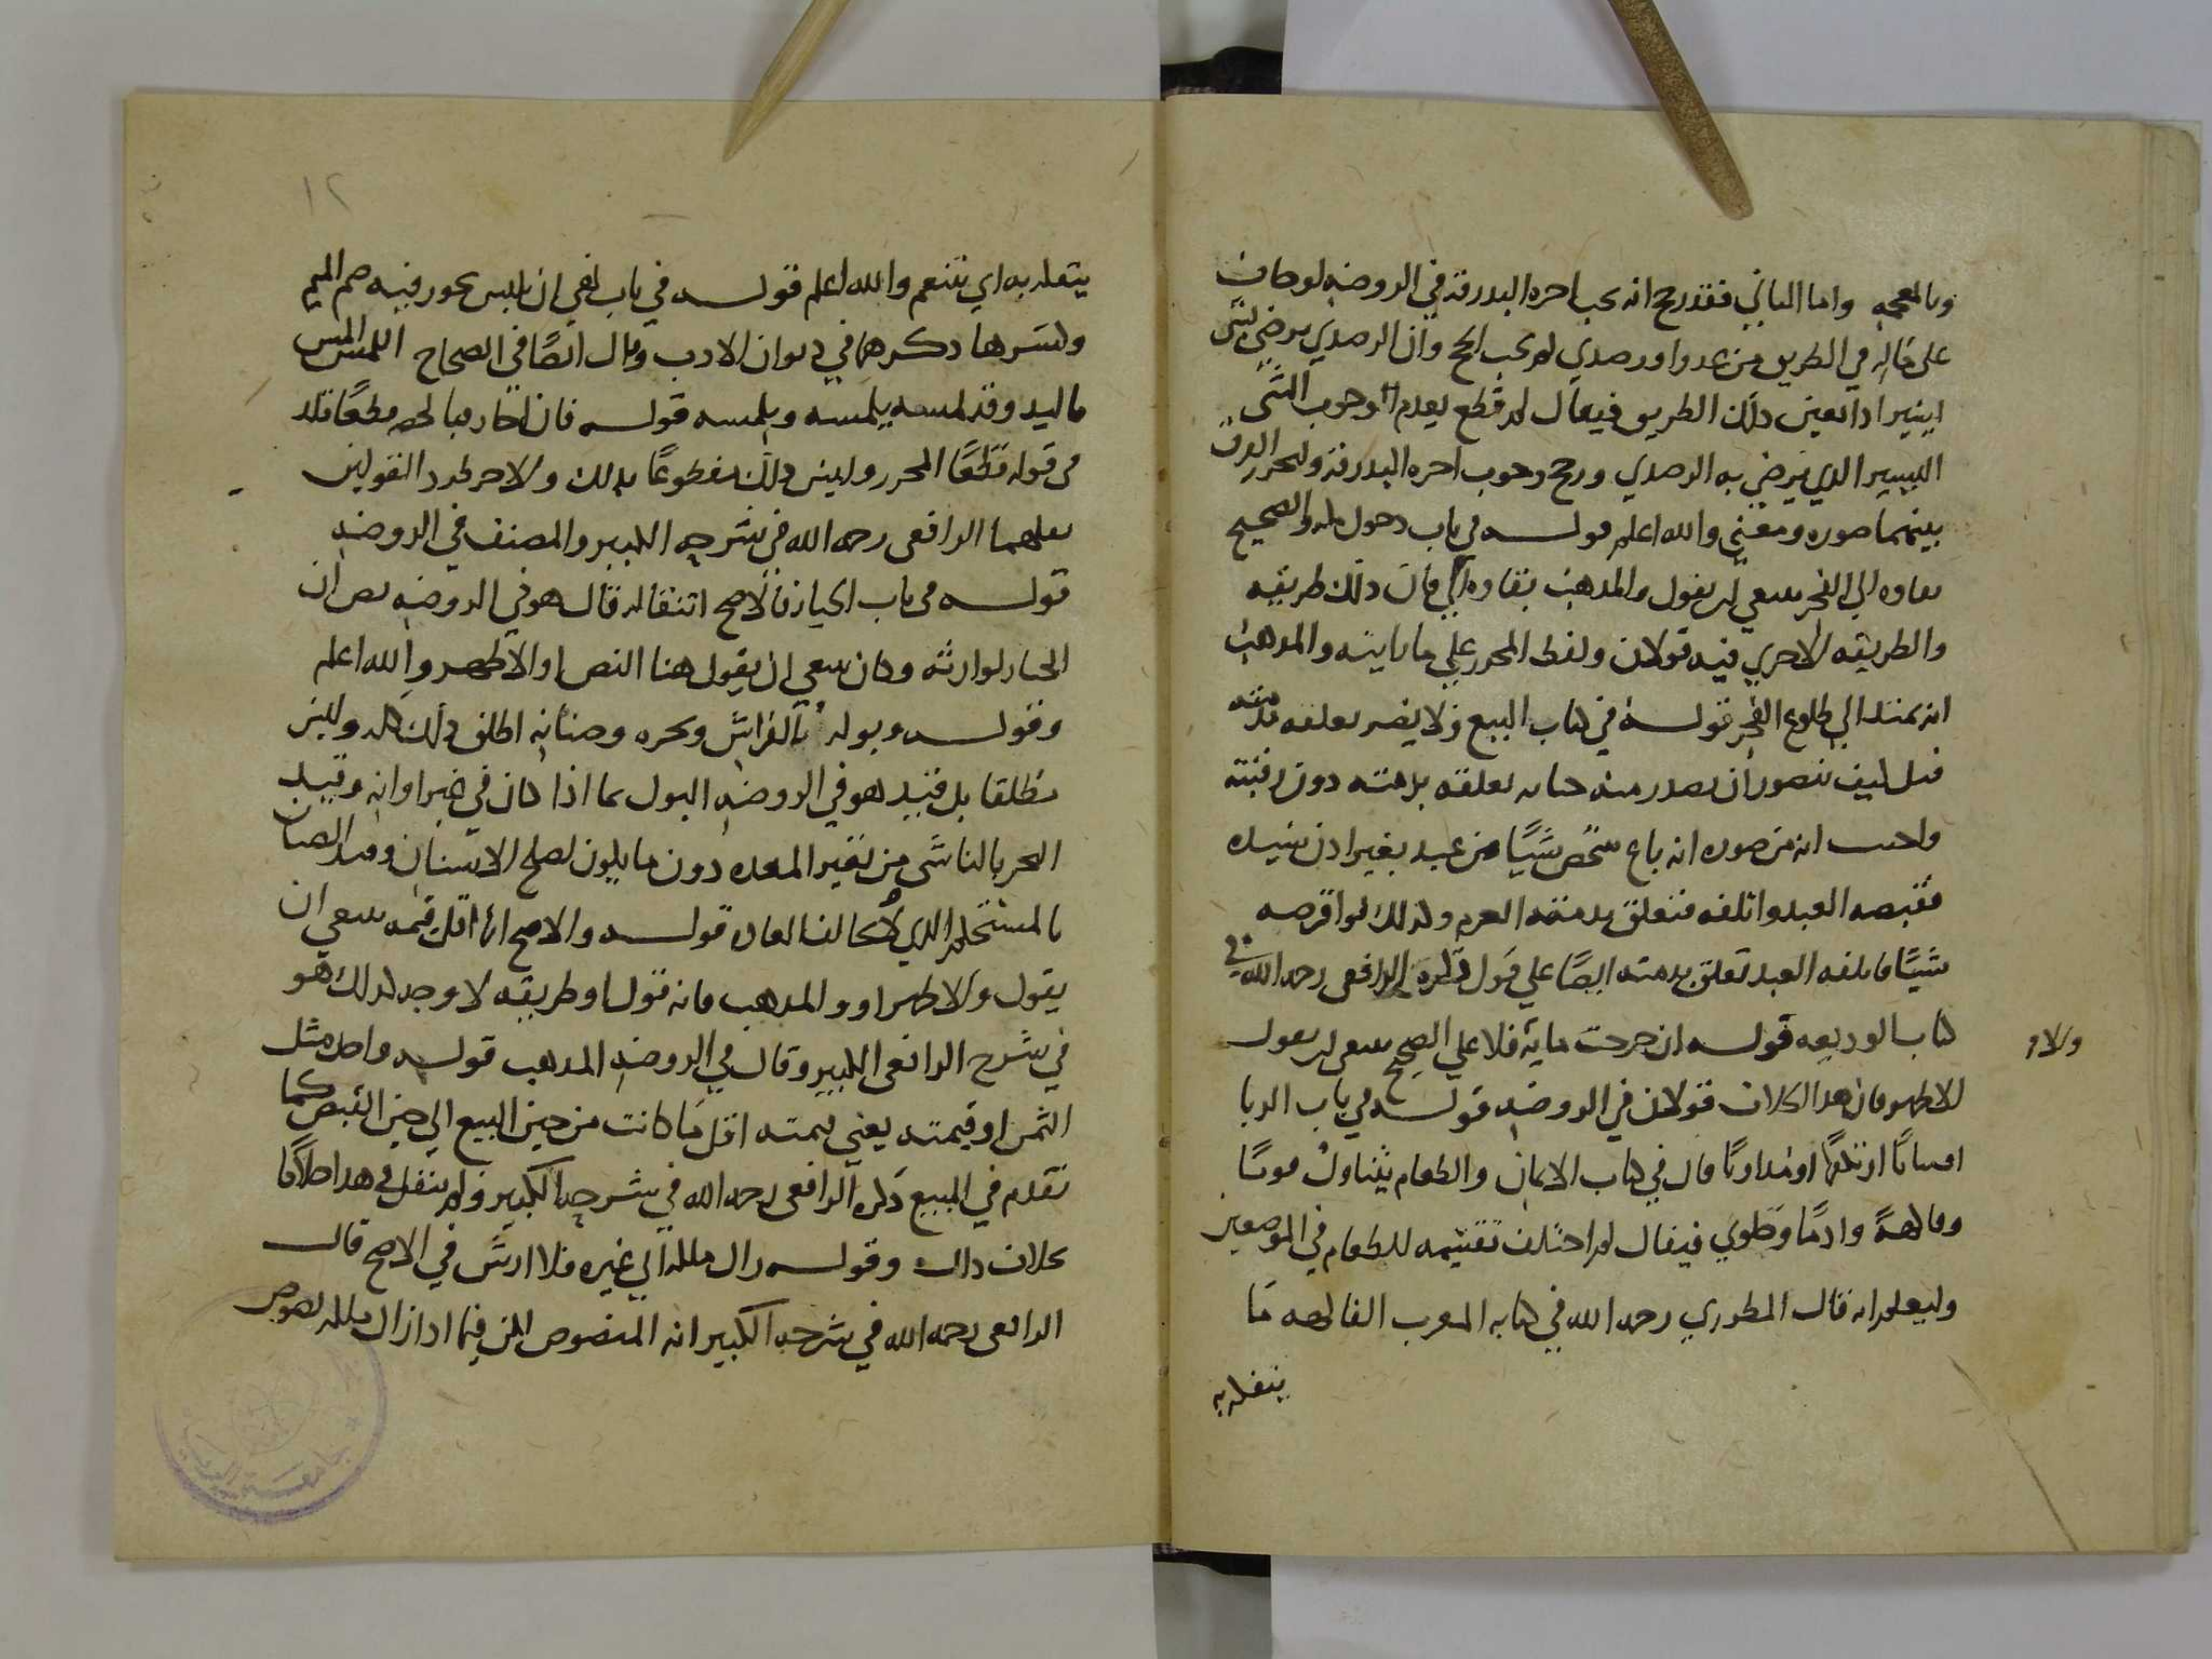 وبالمعجمه واما الثاني فقد رجح انه يجب اجره البدرقة في الروضه لو خاف
على ماله في الطريق من عدو او رصدي لم يجب الحج وان الرصدي يرضى بشي
يسير اذا تعين ذلك الطريق فيقال لم قطع بعدم وجوب الشي
اليسير الذي يرضي به الرصدي ورجح وجوب اجره البدرقة وليحرر الفرق
بينهما صوره ومعنى والله اعلم قوله في باب دخول مكه والصحيح
بقاوه الي الفجر ينبغي ان يقول والمذهب بقاوه الي فان ذلك طريقه
والطريقه الاخري فيه قولان ولفظ المحرر علي ما باينه والمذهب
انه يمتد الي طلوع الفجر قوله في كتاب البيع ولا يضر تعلقه بذمته
قيل كيف يتصور ان يصدر منه جنايه تعلقه بذمته دون رقبته
واجيب انه من صوره انه باع شخص شيًا من عبد بغير اذن سيده
فقبضه العبد واتلفه فتعلق بذمته الغرم وكذلك لو اقرضه
شيًا فاتلفه العبد تعلق بذمته ايضًا علي قول ذكره الرافعى رحمه الله في
كتاب الوديعه قوله ان خرجت مايه فلا علي الصحيح ينبغي ان يقول
الاظهر فان هذا الخلاف قولان في الروضه قوله في باب الربا
اقتياتًا او تفكهًا او تداويًا قال في كتاب الايمان والطعام يتناول قوتًا
وفاكهةً وادمًا وحلوي فيقال لم اختلف تقسيمه للطعام في الموضعين
وليعلم انه قال المطرزي رحمه الله في كتابه المغرب الفاكهه مَا
يتفكه به
ولاو
١٢
يتفكه به اي يتنعم والله اعلم قوله في باب نهي ان يلمس يجوز فيه ضم الميم
وكسرها ذكرهما في ديوان الادب وقال ايضًا في الصحاح اللمس المس
باليد وقد لمسه يلمسه ويلمسه قوله فان تخلل قطعًا قلد
في قوله قطعًا المحرر وليس ذلك مقطوعًا بذلك والاخر طرد القولين
نقلهما الرافعى رحمه الله في شرحه الكبير والمصنف في الروضه
قوله في باب الخيار فالاصح انتقاله قال هو في الروضه نص ان
الخيار لوارثه وكان ينبغي ان يقول هنا النص او الاظهر والله اعلم
وقوله وبوله بالفراش وبخره وصنانه اطلق ذلك كله وليس
مطلقا بل قيد هو في الروضه البول بما اذا كان في غير اوانه وقيد
البخر بالناشى من تغير المعده دون ما يكون لقلح الاسنان وقيد الصنان
بالمستحكم الذي يخالف العاده قوله والاصح انها اقل قيمه ينبغي ان
يقول والاظهر او والمذهب فانه قول او طريقه لا وجه كذلك هو
في شرح الرافعى الكبير وقال في الروضه المذهب قوله واخذ مثل
الثمن او قيمته يعني قيمته اقل مَا كانت من حين البيع الي حين القبض كما
تقدم في المبيع ذكره الرافعى رحمه الله في شرحه الكبير ولم ينقل في هذا خلافًا
بخلاف ذاك وقوله زال ملكه الي غيره فلا ارش في الاصح قال
الرافعى رحمه الله في شرحه الكبير انه المنصوص لكن فيما اذا زال ملكه بعوض